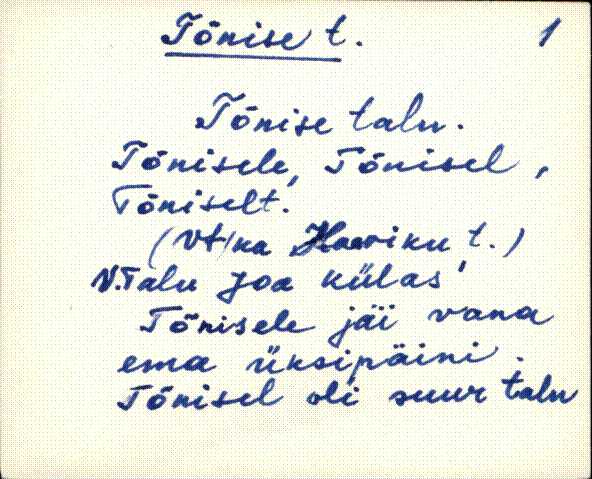 Tõnise t. 1
Tõnise talu.
Tõnisele, Tõnisel,
Tõniselt.
(Vt/ka Haaviku t.)
N.Talu Joa külas
Tõnisele jäi vana
ema üksipäini.
Tõnisel oli suur talu